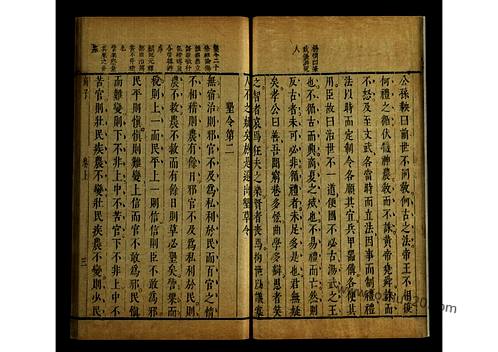 公孫鞅曰前世不同教何古之法帝王不相復
何禮之循伏羲神農教而不誅黃帝堯舜誅而
不怒及至文武各當時而立法因事而制禮禮
法以時而定制令各順其宜兵甲器備各便其
用臣故曰治世不一道便國不必古湯武之王
也不循古而興商夏之滅也不易禮而亡然則
反古者未可必非循禮者未足多是也君無疑
矣孝公曰善吾聞窮巷多怪曲學多辯愚者笑
之智者哀焉狂夫之樂賢者喪焉拘世以議寡
人不之疑矣於是遂出墾草令
墾令第二
無宿治則邪官不及為私利於民而百官之情
不相稽則農有餘日邪官不及為私利於民則
農不敗農不敗而有餘日則草必墾矣訾粟而
稅則上一而民平上一則信信則臣不敢為邪
民平則慎慎則難變上信而官不敢為邪民慎
而難變則下不非上中不苦官下不非上中不
苦官則壯民疾農不變壯民疾農不變則少民
商子 卷上 三